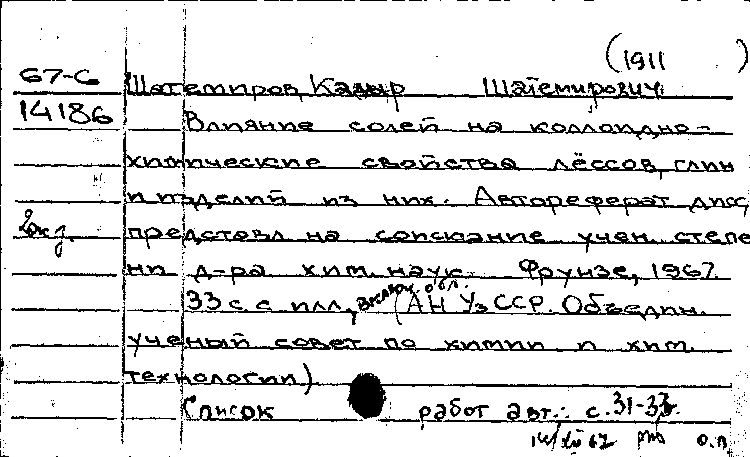 (1911 )
67-6 Шатемиров, Кадыр Шатемирович
14186 Влияние солей на коллоидно-
химические свойства лёссов, глин
и изделий из них. Автореферат дисс,
2экз. представл на соискание учен. степе
ни д-ра хим. наук. Фрунзе, 1967.
33 с. с илл, включ. обл. (АН УзССР. Объедин.
ученый совет по химии и хим.
технологии)
Список работ авт.: с.31-33.
67 о.п